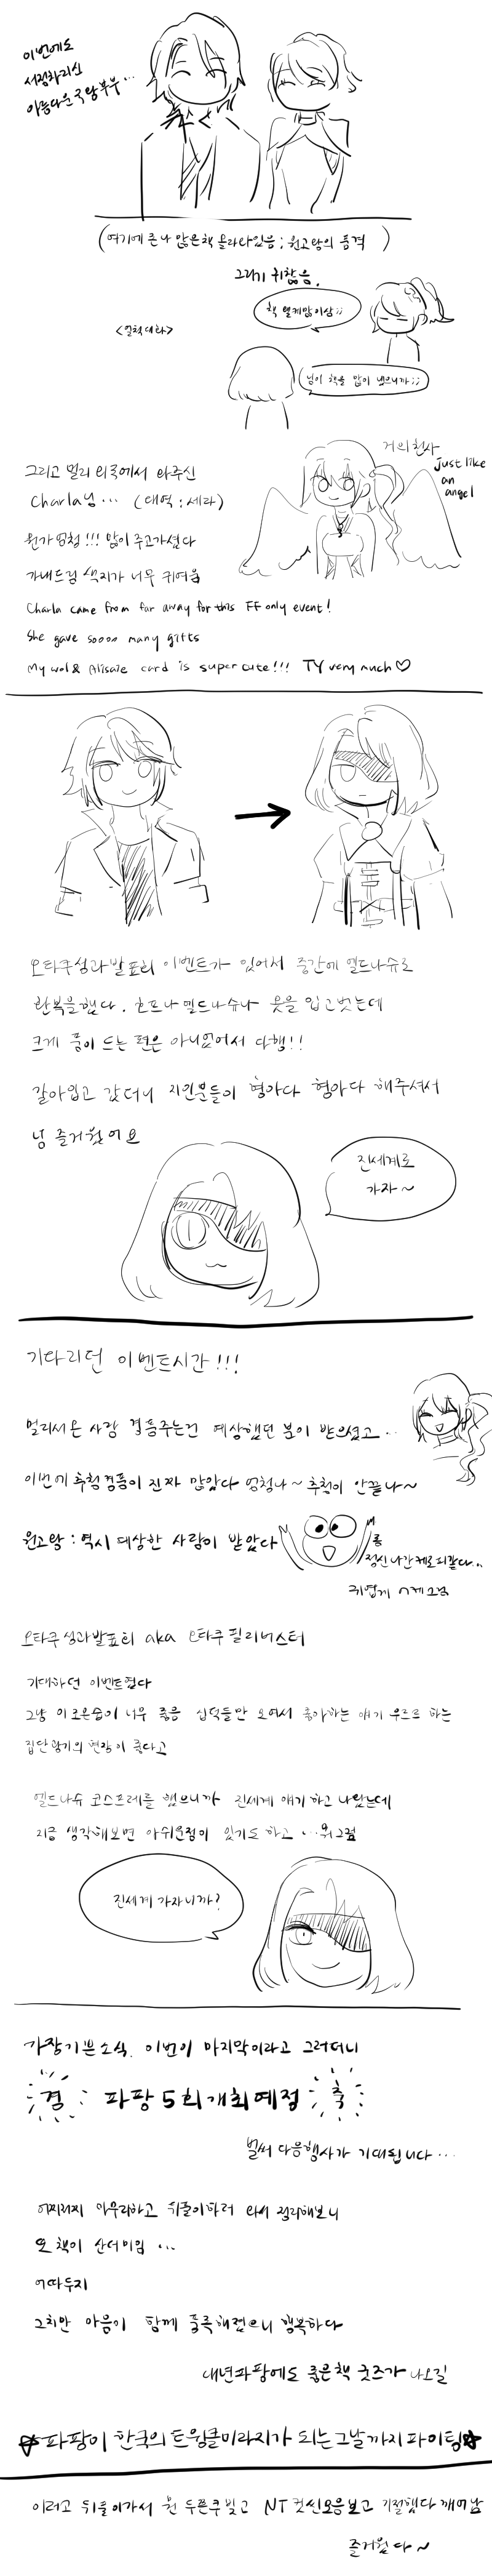 이번에도
서점차리신
아름다운 국왕부부...
(여기에 존나 많은책 올라와있음; 원고왕의 품격 )
그리기 귀찮음.
책 왤케많이삼;;
<실제대화>
님이 책을 많이 냈으니까;;
거의 천사
just like
an
angel
그리고 멀리 외국에서 와주신
Charla님... (대역:세라)
뭔가 엄청!!! 많이 주고가셨다
가내드림 색지가 너무 귀여움
Charla came from far away for this FF only event!
She gave soooo many gifts
My wol & Alisaie card is super cute!!! TY very much♡
오타쿠성과발표회 이벤트가 있어서 중간에 엘드나슈로
환복을했다. 흐프나 엘드나슈나 옷을 입고벗는데
크게 품이 드는 편은 아니었어서 다행!!
갈아입고 갔더니 지인분들이 형아다 형아다 해주셔서
넘 즐거웠어요
진세계로
가자~
기다리던 이벤트시간!!!
멀리서온 사람 경품주는건 예상했던 분이 받으셨고..
이번에 추첨경품이 진짜 많았다 엄청나~ 추첨이 안끝나~
원고왕 : 역시 예상한 사람이 받았다
정신나간 케로피같다...
귀엽게
오타쿠성과발표회 aka 오타쿠 필리버스터
기대하던 이벤트였다
그냥 이 모든 것이 너무 좋음 십덕들만 모여서 좋아하는 얘기 우르르 하는
집단광기의 현장이 좋다고
엘드나슈 코스프레를 했으니까 진세계 얘기 하고 나왔는데
지금 생각해보면 아쉬운점이 있기도 하고 ...뭐그럼
진세계 가자니까?
가장기쁜소식. 이번이 마지막이라고 그러더니
경 파팡5회개최예정 축
벌써 다음행사가 기대됩니다...
어찌저찌 마무리하고 뒤풀이하러 와서 정리해보니
또 책이 산더미임 ...
어따두지
그치만 마음이 함께 풍족해졌으니 행복하다
내년파팡에도 좋은책 굿즈가 나오길
☆파팡이 한국의 트윙클미라지가 되는그날까지 파이팅☆
이러고 뒤풀이가서 뭔 두쫀쿠빚고 NT 컷신모음보고 기절했다 깨어남
즐거웠다~